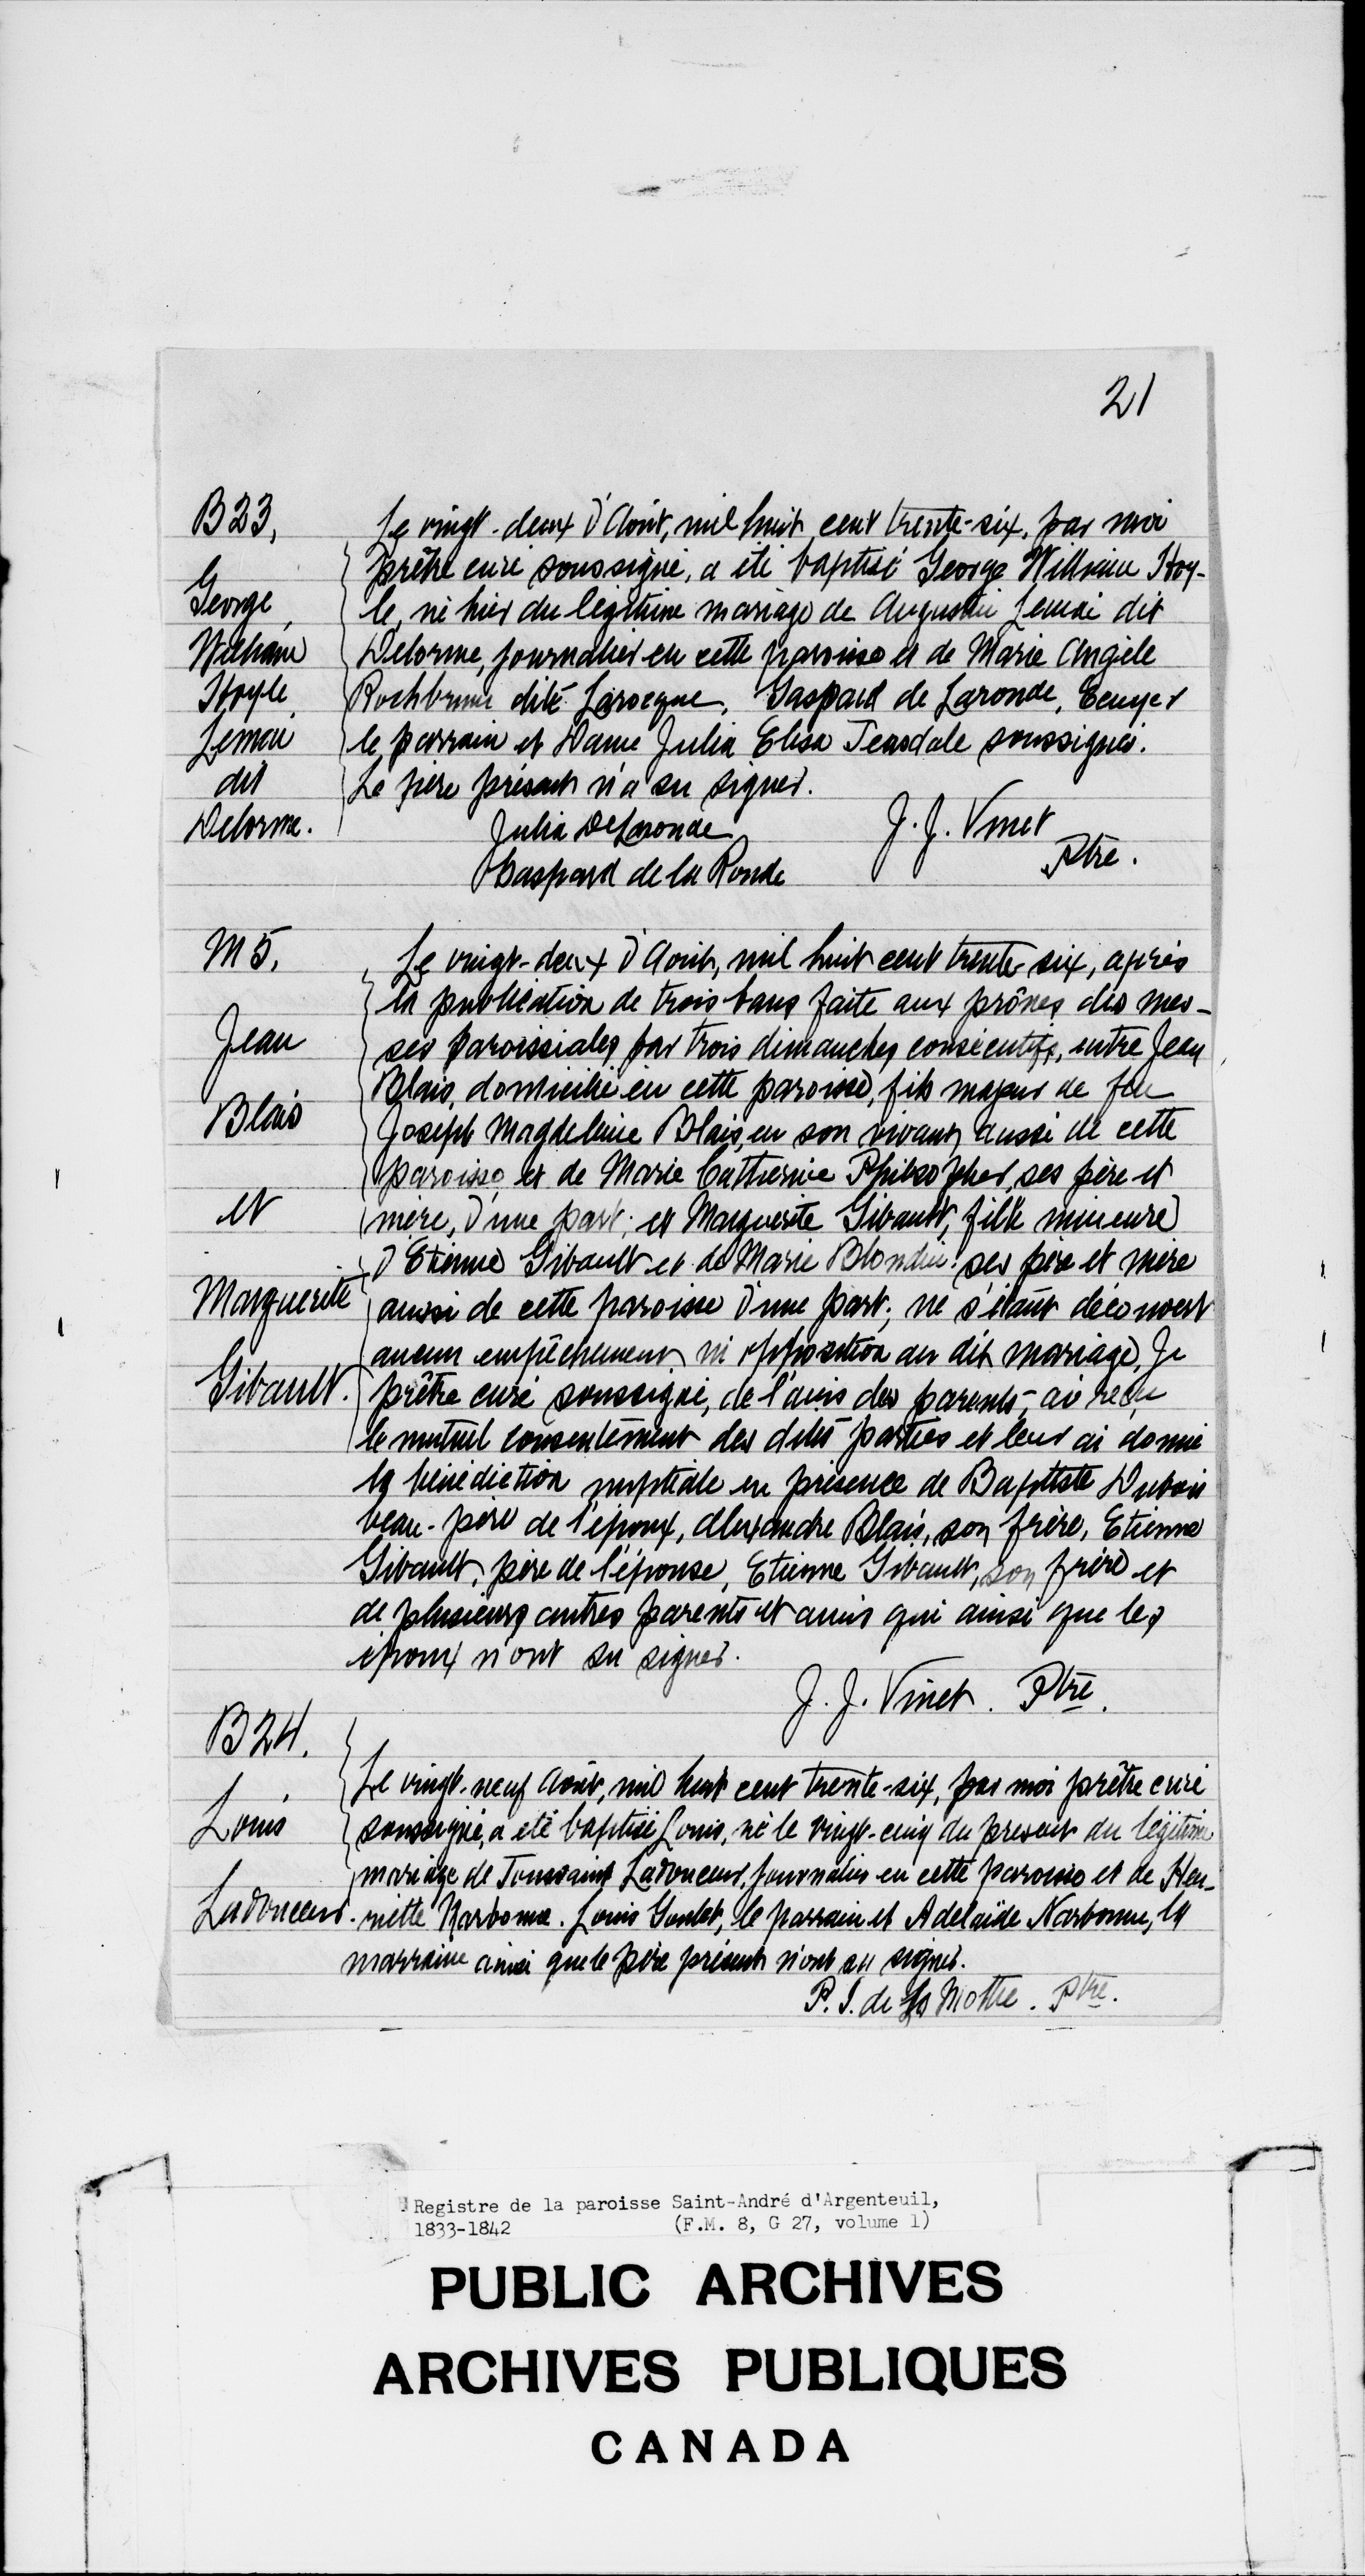 21
B23,
George
William
Hoyle
Lemai
dit
Delorme.
Le vingt-deux d'Août, mil huit cent trente-six, par moi
prêtre curé soussigné, a été baptisé George William Hoy-
le, né hier du légitime mariage de Augustin Lemai dit
Delorme, journalier en cette paroisse et de Marie Angèle
Rochbrune dite Larocque. Gaspard de Laronde, Ecuyer
le parrain et Dame Julia Elisa Teasdale soussignés.
Le père présent n'a su signer.
Julia DeLaronde J. J. Vinet
Gaspard de la Ronde Ptre.
M5,
Jean
Blais
et
Marguerite
Gibault.
Le vingt-deux d'Août, mil huit cent trente-six, après
la publication de trois bans faite aux prônes des mes-
ses paroissiales par trois dimanches consécutifs, entre Jean
Blais, domicilié en cette paroisse, fils majeur de feu
Joseph Magdeleine Blais, en son vivant aussi de cette
paroisse et de Marie Catherine Philsopher, ses père et
mère, d'une part; et Marguerite Gibault, fille mineure
d'Etienne Gibault et de Marie Blondin ses père et mère
aussi de cette paroisse d'une part; ne s'étant découvert
aucun empêchement ni opposition au dit mariage, Je
prêtre curé soussigné, de l'avis des parents, ai reçu
le mutuel consentement des dites parties et leur ai donné
la bénédiction nuptiale en présence de Baptiste Dubois
beau-père de l'époux, Alexandre Blais, son frère, Etienne
Gibault, père de l'épouse, Etienne Gibault, son frère et
de plusieurs autres parents et amis qui ainsi que les
époux n'ont su signer.
J. J. Vinet. Ptre.
B24.
Louis
Ladouceur.
Le vingt-neuf Août, mil huit cent trente-six, par moi prêtre curé
soussigné, a été baptisé Louis, né le vingt-cinq du présent du légitime
mariage de Toussaint Ladouceur, journalier en cette paroisse et de Hen-
riette Narbonne. Louis Goulet, le parrain et Adelaïde Narbonne, la
marraine ainsi que le père présents n'ont su signer.
P. J. de La Mothe. Ptre.
Registre de la paroisse Saint-André d'Argenteuil,
1833-1842 (F.M. 8, G 27, volume 1)
PUBLIC ARCHIVES
ARCHIVES PUBLIQUES
CANADA